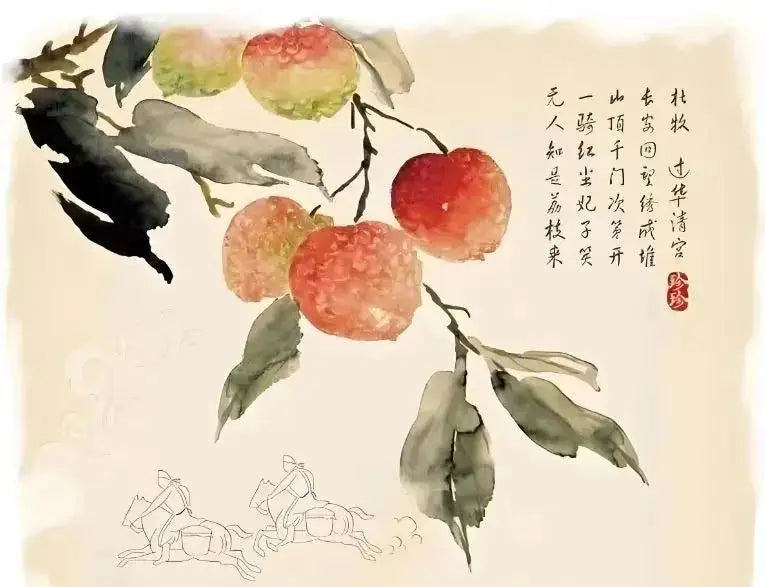 杜牧 过华清宫
长安回望绣成堆
山顶千门次第开
一骑红尘妃子笑
无人知是荔枝来
珍珍